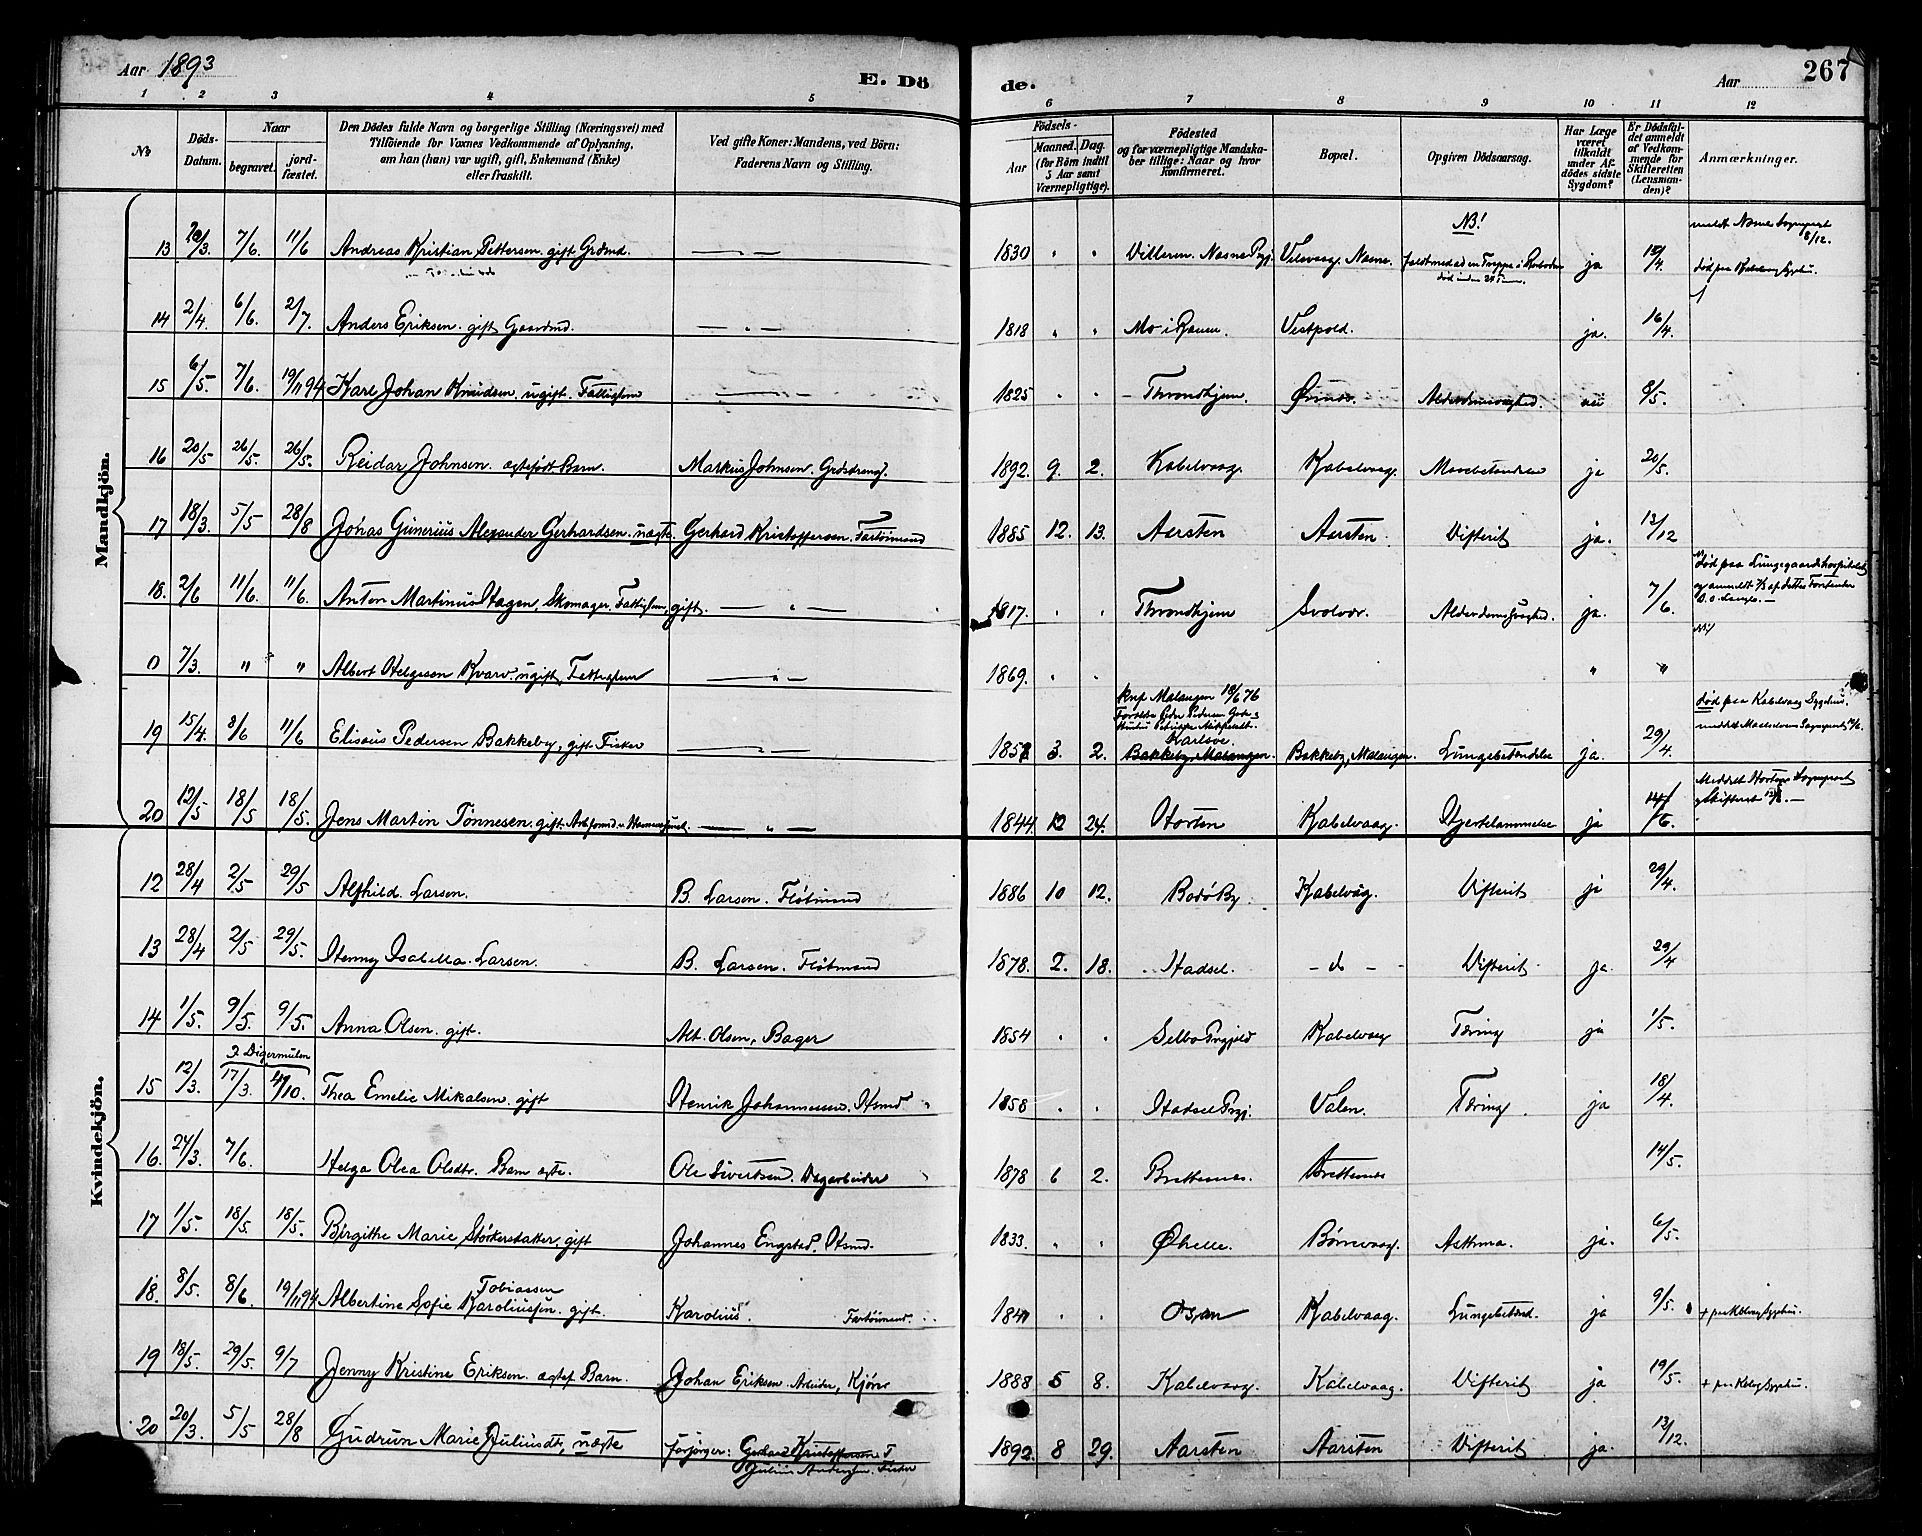 Aar 1893 E. Dö de. Aar 267
1 2 3 4 5 6 7 8 9 10 11 12
No Döds-Datum. Naar begravet. jordfæstet. Den Dödes fulde Navn og borgerlige Stilling (Næringsvei) med Tilföiende for Voxnes Vedkommende af Oplysning, om han (hun) var ugift, gift, Enkemand (Enke) eller fraskilt. Ved gifte Koner: Mandens, ved Börn: Faderens Navn og Stilling. Födsels- Aar Maaned. Dag. (for Börn indtil 5 Aar samt Værnepligtige). Födested og for værnepligtige Mandskaber tillige: Naar og hvor konfirmeret. Bopæl. Opgiven Dödsaarsag. Har Læge været tilkaldt under Afdödes sidste Sygdom? Er Dödsfaldet anmeldt af Vedkommende for Skifteretten (Lensmanden)? Anmærkninger.
Mandkjön.
NB!
13 20/3 7/6. 11/6 Andreas Kristian Pettersen gift Grdmd. — 1830 " " Villeren. Nesne Prgj. Velsvaag. Nesne. ja 18/4. død paa Kabelvaag Sygehus.
14 2/4. 6/6. 2/7. Anders Eriksen. gift Gaardmd. — " — 1818 " " Mo i Ranen Vestpold. ja. 16/4.
15 6/5 7/6. 19/11 94 Karl Johan Knudsen. ugift. Fattiglem — 1825 " " Throndhjem. Ørsnes. Alderdomssvaghed. nei 8/5.
16 20/5 26/5. 26/5. Reidar Johnsen. ægtefødt Barn. Markus Johnsen. Grdsdreng. 1892. 9. 2. Kabelvaag. Kabelvaag. Mavebetændelse ja 20/5.
17 18/3. 5/5 28/8 Jonas Gunerius Alexander Gerhardsen. uægte. Gerhard Kristoffersen. Fartöimand 1885 12. 13. Aarsten Aarsten. Difterit ja. 13/12
18. 2/6 11/6. 11/6. Anton Martinus Hagen, Skomager. Fattiglem, gift. — " — 1817. " " Throndhjem Svolvær. Alderdomssvaghed. ja. 7/6. Død paa Lungegaardshospitalet og anmeldt
0 7/3. " " Albert Helgesen Kvarv. ugift. Fattiglem — " — 1869. " " " "
19 15/4. 8/6 11/6 Eliseus Pedersen Bakkeby, gift Fisker — 1851 3. 2. knf Malangen 18/6 76 Karlsøe. Bakkeby, Malangen. Bakkeby, Malangen. Lungebetændelse ja. 29/4. død paa Kabelvaag Sygehus.
20 12/5 18/5 18/5. Jens Martin Tönnesen. gift — " — 1844 12 24. Horten Kabelvaag. Hjertelammelse ja 14/6. Meddelt Hortens Sogneprest og Skifteret
Kvindekjön.
12 28/4 2/5 29/5 Alfhild Larsen. B. Larsen. Fløtmand 1886 10 12. Bodö By. Kabelvåg. Difterit ja 29/4.
13 28/4 2/5 29/5. Henny Isabella Larsen. B. Larsen. Fløtmand 1878. 2. 18. Hadsel. – do – Difterit ja. 29/4
14 1/5. 9/5. 9/5. Anna Olsen. gift. Alb. Olsen, Bager 1854 " " Selbo Prgjeld Kabelvaag Tæring ja 1/5.
15 12/3. I Digermulen 17/3. 4/10. Thea Emelie Mikalsen. gift Henrik Johannessen. Husmd 1858 " " Hadsel Prgj. Valen. Tæring ja 18/4.
16. 24/3. 7/6. Helga Olea Olsdtr. Barn ægte. Ole Sivertsen. Dagarbeider 1878 6 2. Brettesnes. Brettesnes 14/5.
17 1/5. 18/5 18/5. Birgithe Marie Størkersdatter. gift Johannes Engstad. Husmd. 1833. " " Øhelle. Børnevaag. Asthma. ja. 6/5.
18. 8/5. 8/6. 19/11 94 Albertine Sofie Karoliussen Tobiassen gift. Karolius. Fartöimand. 1841 " " Osan Kabelvaag. Lungebetænd. ja 9/5. + paa Kblvaag Sygehus.
19 18/5. 29/5. 9/7 Jenny Kristine Eriksen. ægtef. Barn. Johan Eriksen. Arbeider, Kjöre 1888 5 8. Kabelvaag. Kabelvaag. Difterit ja 19/5. + paa Kblvg Sygehus.
20 20/3. 5/5 28/8 Gudrun Marie Juliusdt, uægte forsörger: Gerhard Kristoffersen F 1892. 8 29. Aarsten Aarsten Difterit ja. 13/12.
Julius Andersen. Fisker